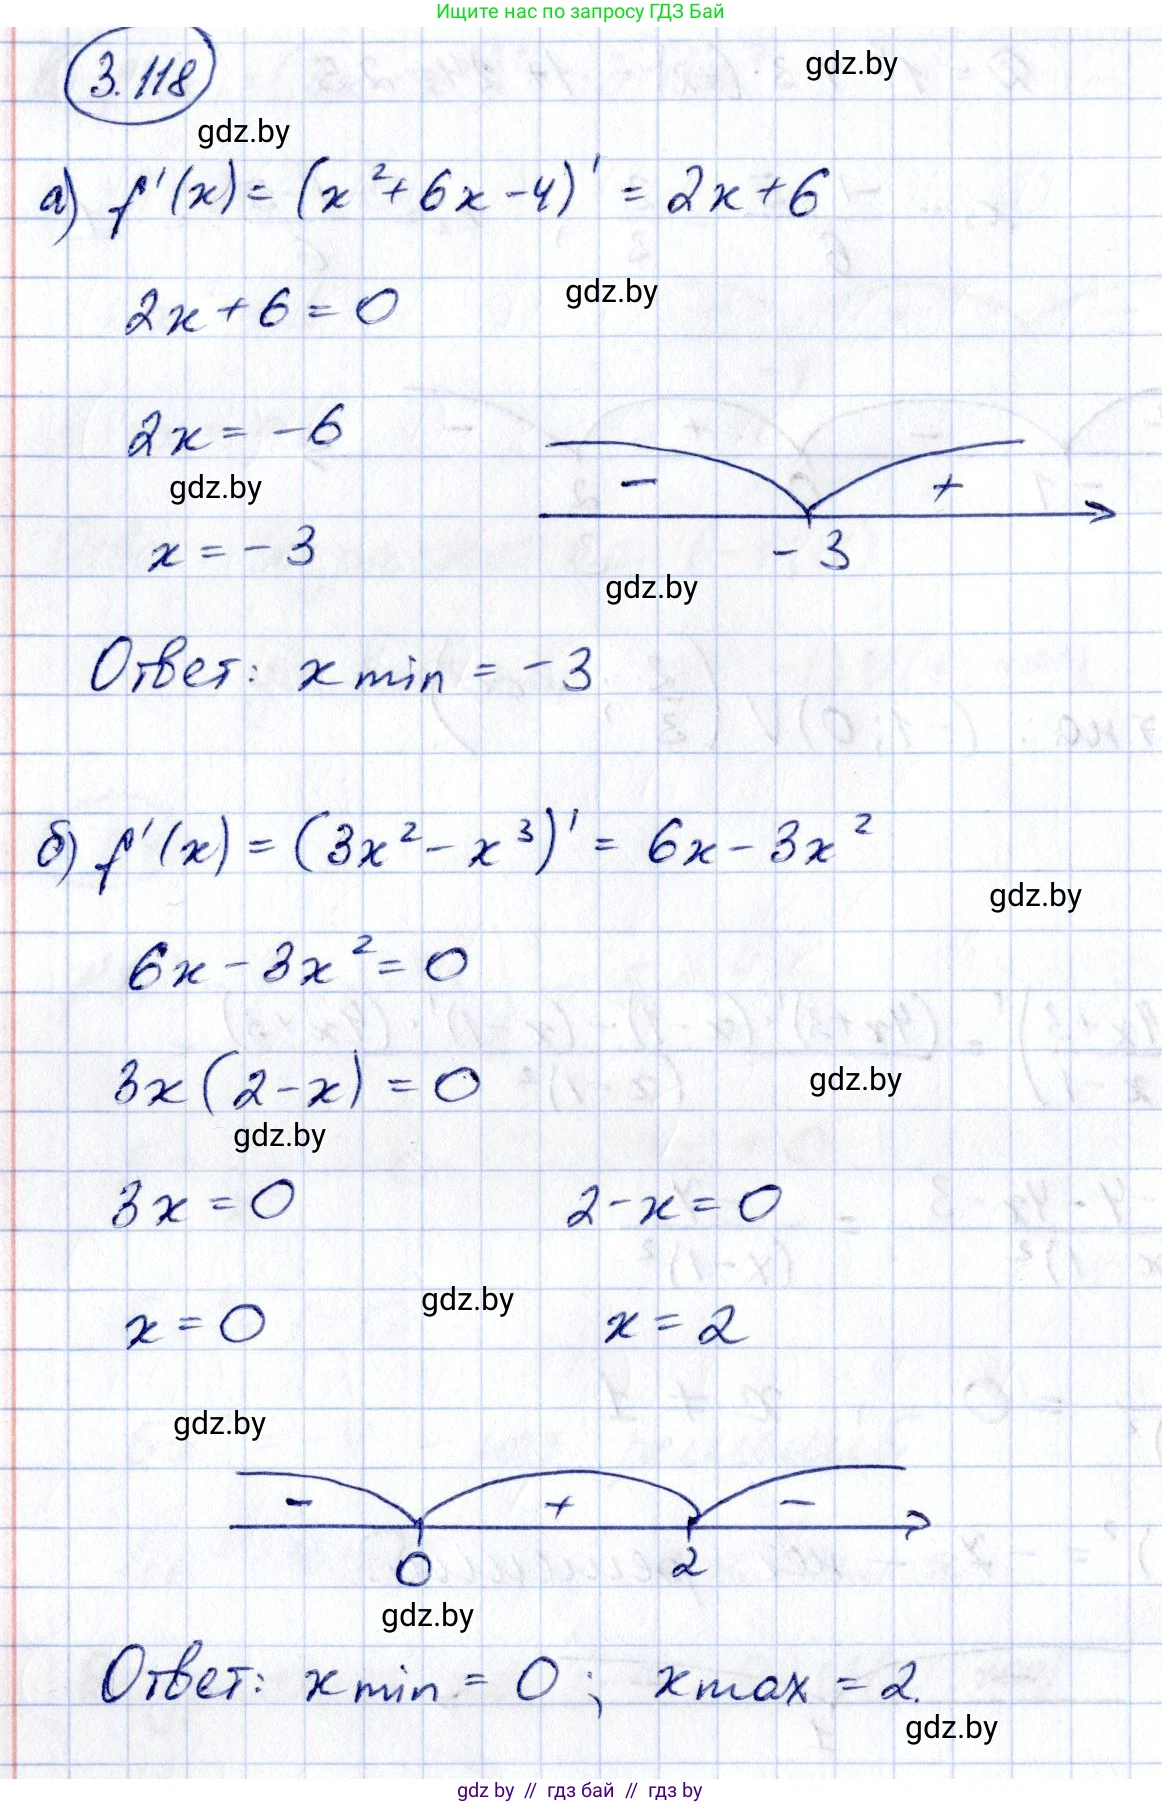 Ищите нас по запросу ГДЗ Бай
3.118
gdz.by
gdz.by
а) f'(x) = (x² + 6x - 4)' = 2x + 6
2x + 6 = 0
gdz.by
2x = -6
gdz.by
- +
x = -3
-3
gdz.by
Ответ: x min = -3
б) f'(x) = (3x² - x³)' = 6x - 3x²
gdz.by
6x - 3x² = 0
3x(2 - x) = 0
gdz.by
gdz.by
3x = 0 2 - x = 0
gdz.by
x = 0 x = 2
gdz.by
- + -
0 2
gdz.by
Ответ: x min = 0; x max = 2.
gdz.by
gdz by // гдз бай // гдз by